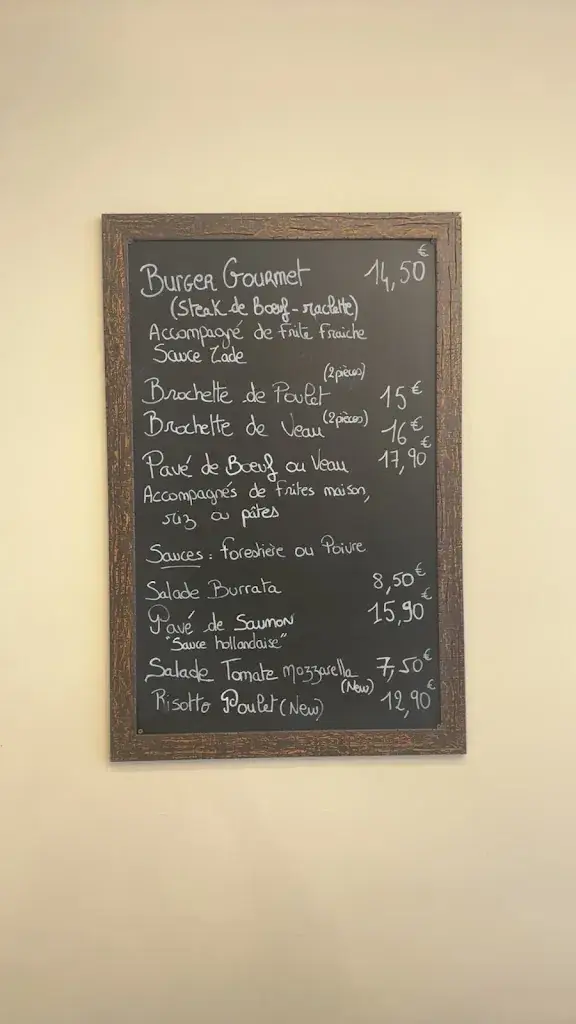 Burger Gourmet 14,50€
(Steak de Bœuf - raclette)
Accompagné de frite fraiche
Sauce Zade
Brochette de Poulet (2 pièces) 15€
Brochette de Veau (2 pièces) 16€
Pavé de Bœuf ou Veau 17,90€
Accompagnés de frites maison,
riz ou pâtes
Sauces : forestière ou Poivre
Salade Burrata 8,50€
Pavé de Saumon 15,90€
"Sauce hollandaise"
Salade Tomate mozzarella (New) 7,50€
Risotto Poulet (New) 12,90€